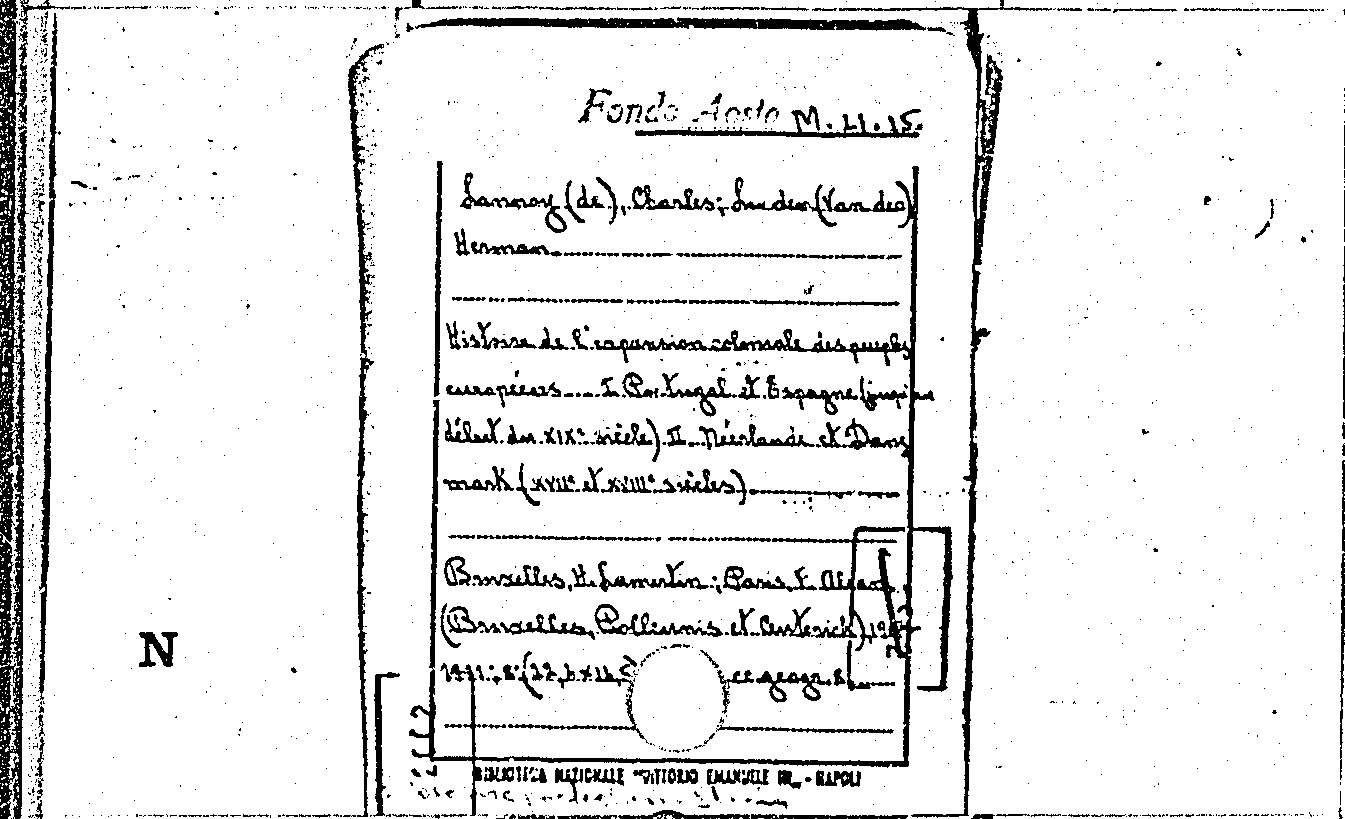 Fondo Aosta M. 11. 15.
Lannoy (de), Charles; Linden (Van der)
Herman
Histoire de l'expansion coloniale des peuples
européens... I. Portugal et Espagne (jusqu'au
début du XIXe siècle) II. Néerlande et Dane
mark (XVIIe et XVIIIe siècles)
Bruxelles, H. Lamertin; Paris, F. Alcan,
(Bruxelles, et
1911; 8° (22, geogr. 2.
BIBLIOTECA NAZIONALE "VITTORIO EMANUELE III„ - NAPOLI
N